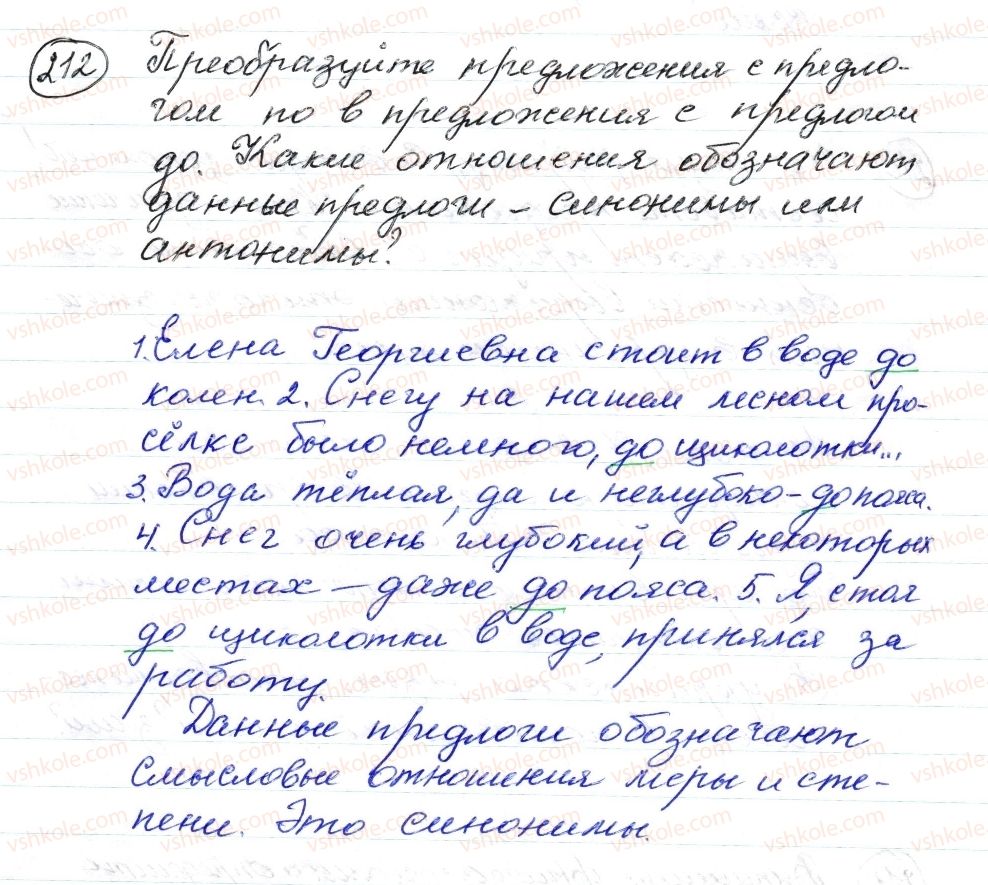 212 Преобразуйте предложения с предло-
гом по в предложения с предлогом
до. Какие отношения обозначают
данные предлоги – синонимы или
антонимы?
1. Елена Георгиевна стоит в воде до
колен. 2. Снегу на нашем лесном про-
сёлке было немного, до щиколотки...
3. Вода тёплая, да и неглубоко - до пояса.
4. Снег очень глубокий, а в некоторых
местах – даже до пояса. 5. Я, стоя
до щиколотки в воде, принялся за
работу.
Данные предлоги обозначают
смысловые отношения меры и сте-
пени. Это синонимы.
vshkole.com